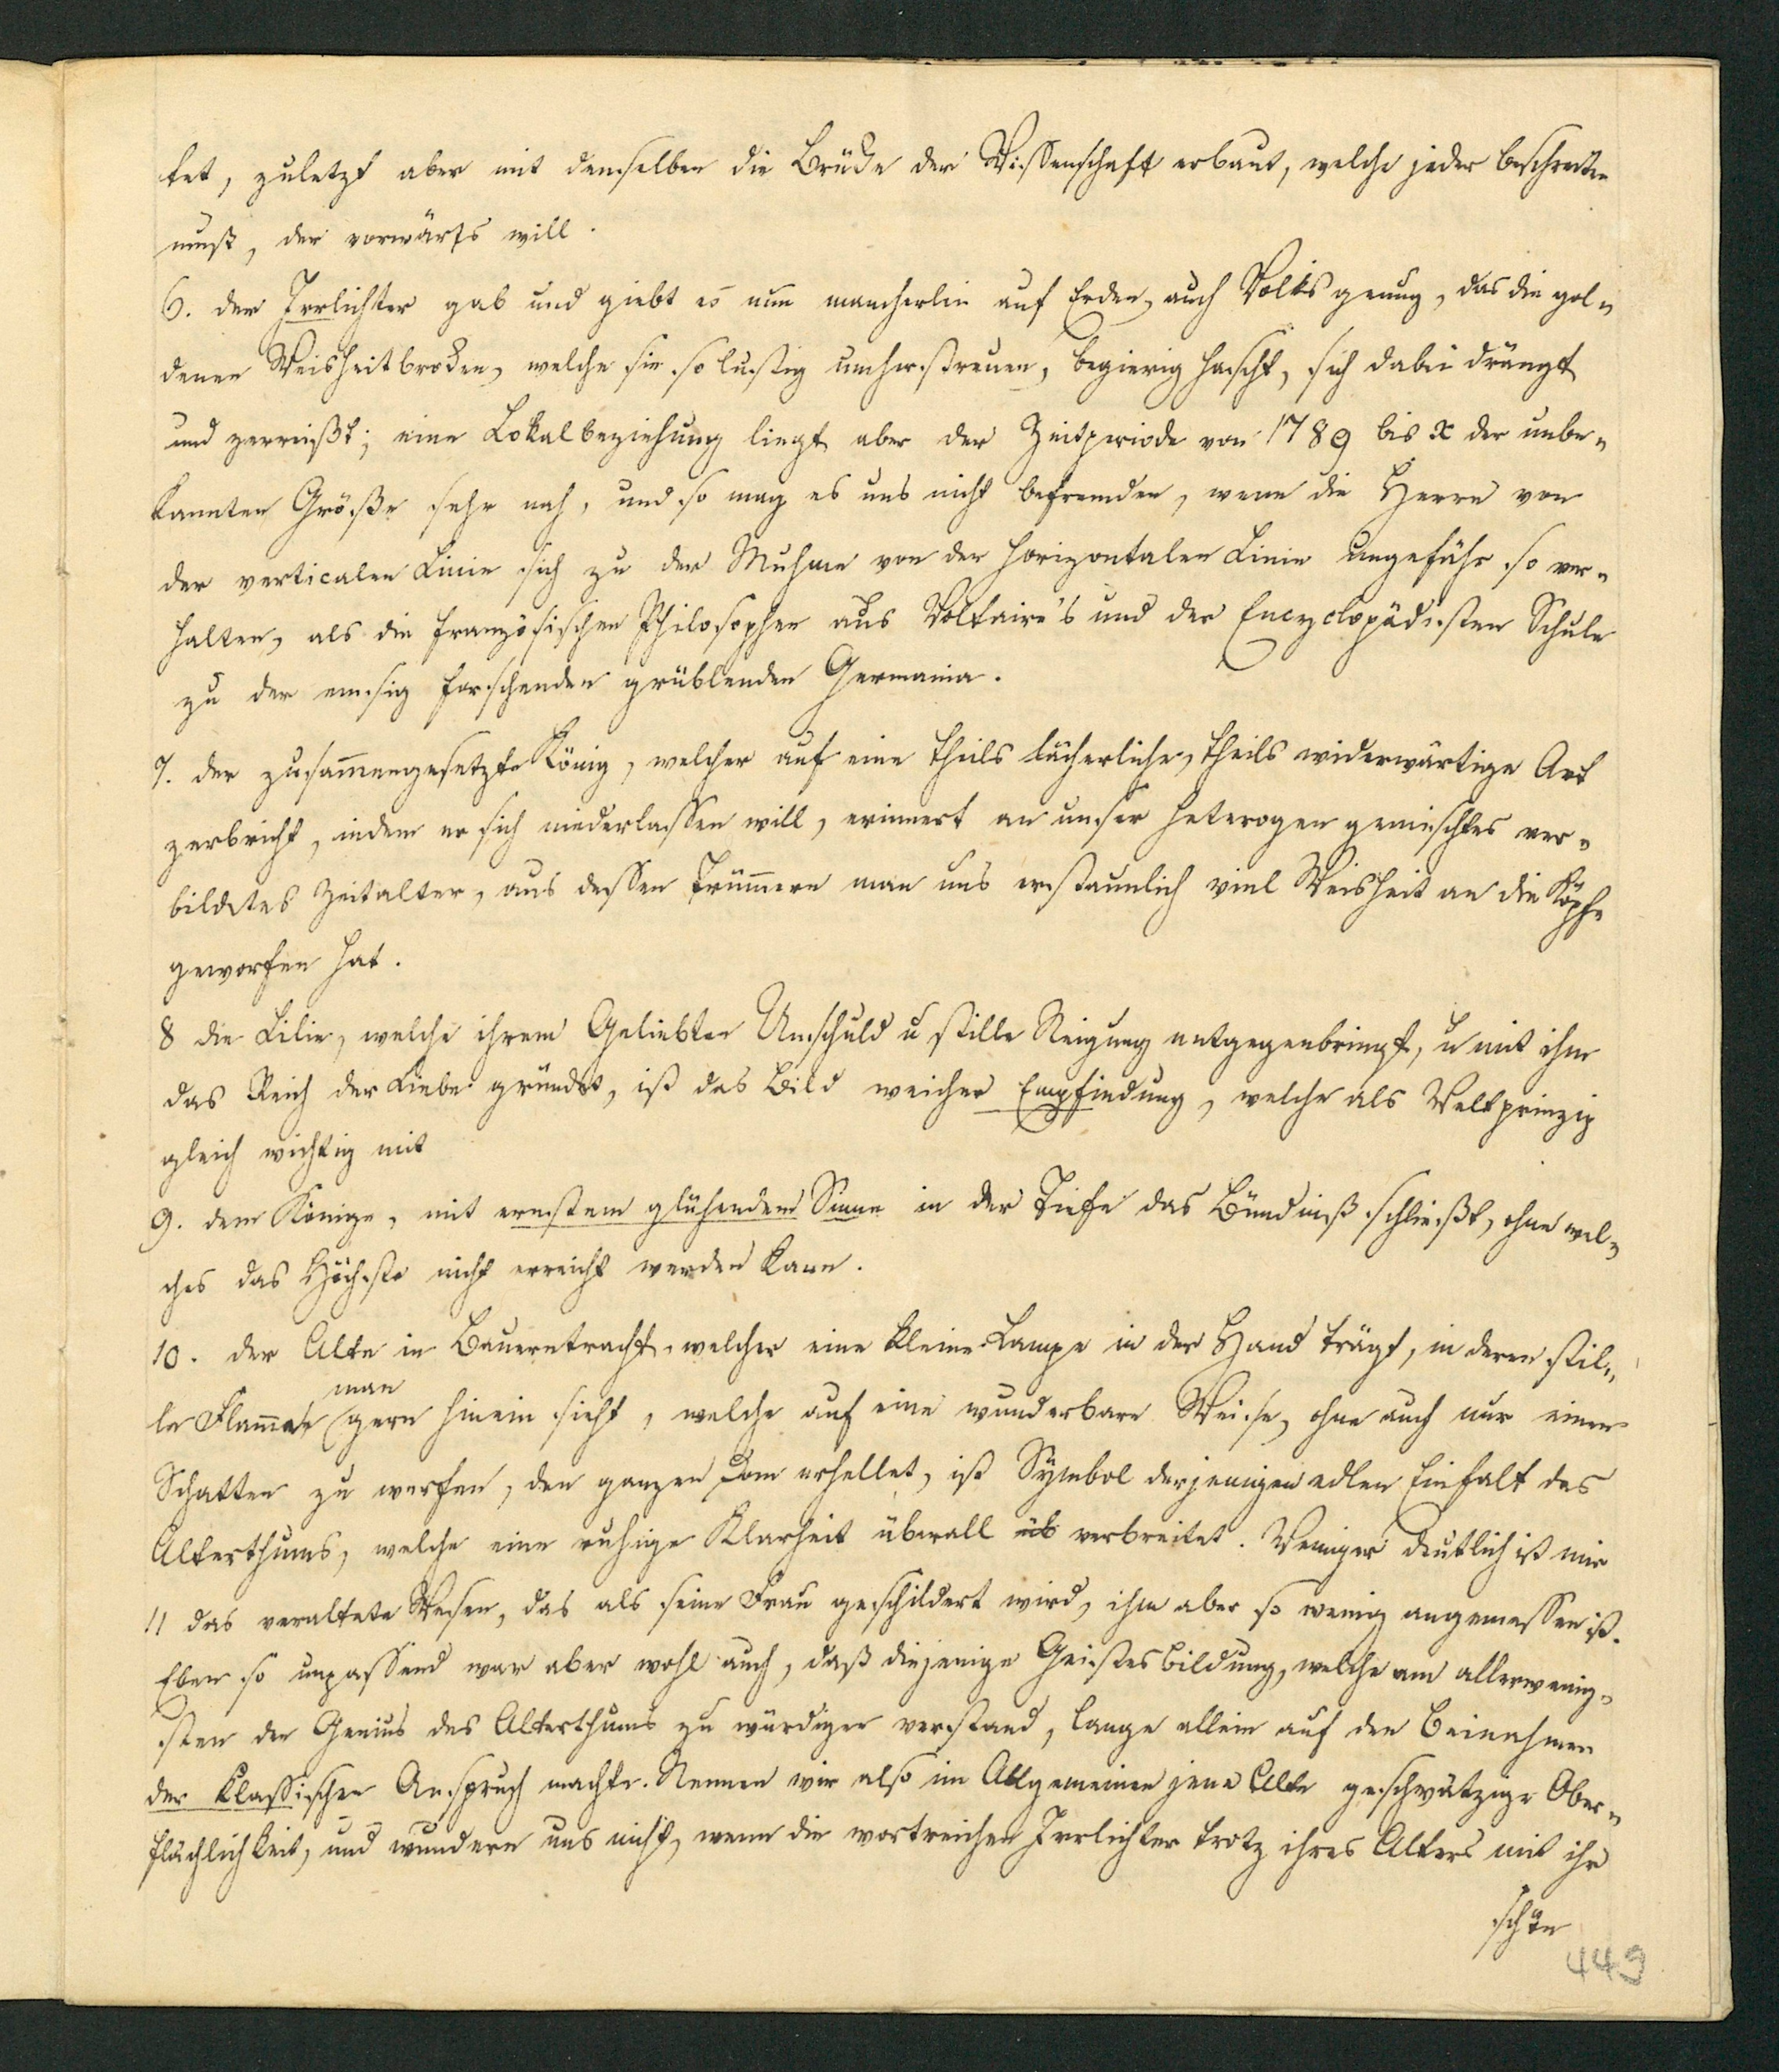 tet, zuletzt aber mit demselben die Brücke der Wissenschaft erbaut, welche jeder beschreiten
muß, der vorwärts will.
6. der Irrlichter gab und giebt es nun mancherlei auf Erden, auch Volks genug, das die gol-
denen Weisheitbrocken, welche sie so lustig umherstreuen, begierig hascht, sich dabei drängt
und zerreißt; eine Lokalbeziehung liegt aber der Zeitperiode von 1789 bis x der unbe-
kannten Größe sehr nah, und so mag es uns nicht befremden, wenn die Herrn von
der verticalen Linie sich zu der Muhme von der horizontalen Linie ungefähr so ver-
halten, als die französischen Philosophen aus Voltaire's und der Encyclopädisten Schule
zu der emsig forschenden grüblenden Germania.
7. der zusam̄engesetzte König, welcher auf eine theils lächerliche, theils widerwärtige Art
zerbricht, indem er sich niederlassen will, erinnert an unser heterogen gemischtes ver-
bildetes Zeitalter, aus dessen Trüm̄ern man uns erstaunlich viel Weisheit an die Köpfe
geworfen hat.
8 die Lilie, welche ihrem Geliebten Unschuld u stille Neigung entgegenbringt, u mit ihm
das Reich der Liebe gründet, ist das Bild weicher Empfindung, welche als Weltprinzip
gleich wichtig mit
9. dem Könige, mit ernstem glühendem Sinne in der Tiefe das Bündniß schließt, ohne wel-
ches das Höchste nicht erreicht werden kann.
10. der Alte in Bauerntracht, welcher eine kleine Lampe in der Hand trägt, in deren stil-
man
le Flam̄e gern hinein sieht, welche auf eine wunderbare Weise, ohne auch nur einen
Schatten zu werfen, den ganzen Dom erhellet, ist Symbol derjenigen edlen Einfalt des
Alterthums, welche eine ruhige Klarheit überall üb verbreitet. Weniger deutlich ist mir
11 das veraltete Wesen, das als seine Frau geschildert wird, ihm aber so wenig angemessen ist.
Eben so unpassend war aber wohl auch, daß diejenige Geistesbildung, welche am allerwenig-
sten den Genius des Alterthums zu würdigen verstand, lange allein auf den Beinahmen
der klassischen Anspruch machte. Nennen wir also im Allgemeinen jene Alte geschwätzige Ober-
flächlichkeit, und wundern uns nicht, wenn die wortreichen Irrlichter trotz ihres Alters mit ihr
schön
449